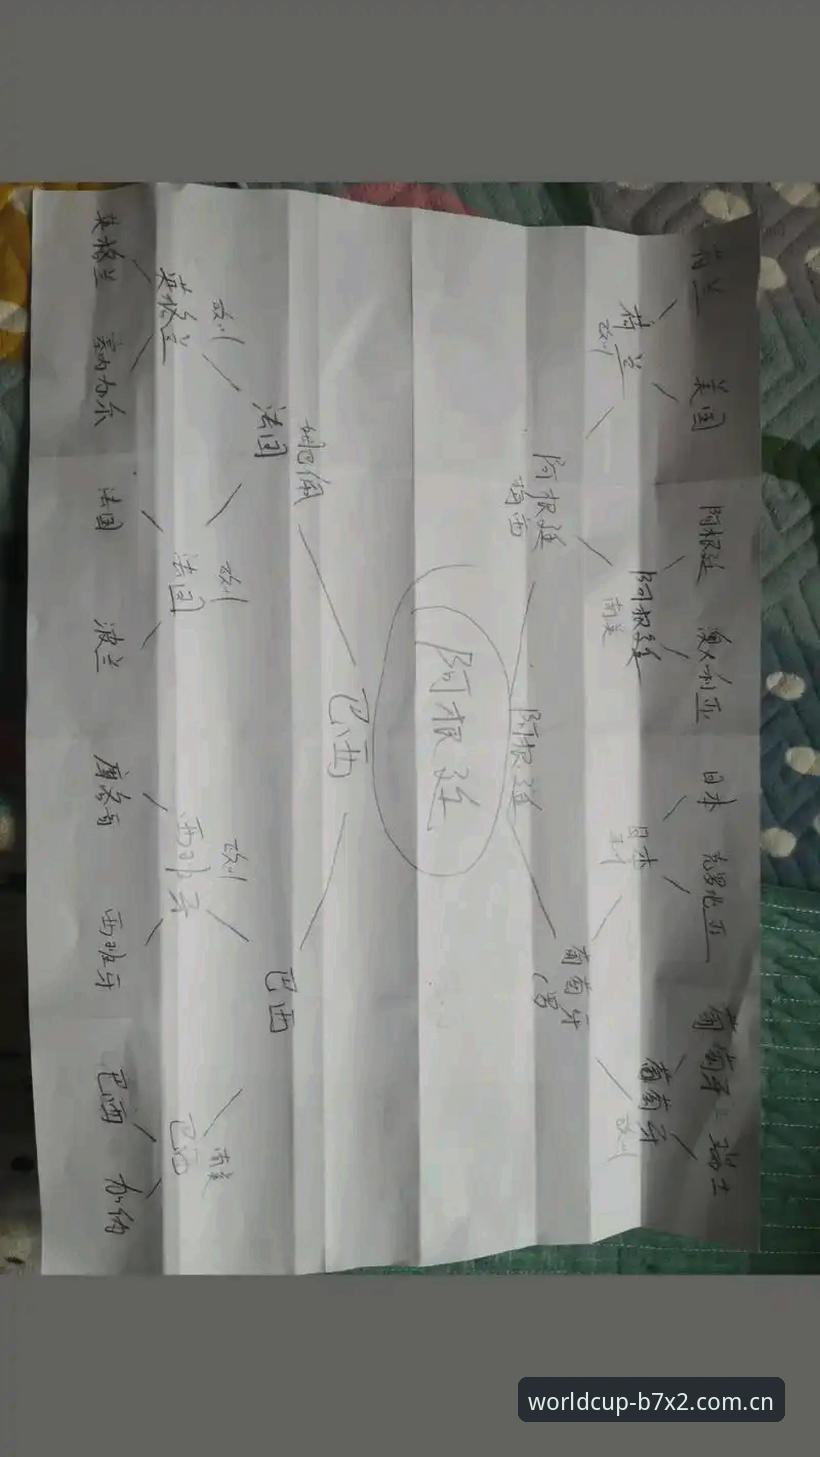 荷兰
美国
阿根廷
澳大利亚
日本
克罗地亚
葡萄牙
瑞士
荷兰
欧洲
阿根廷
南美
日本
葡萄牙
欧洲
阿根廷
梅西
葡萄牙
阿根廷
阿根廷
巴西
姆巴佩
法国
巴西
欧洲
英格兰
欧洲
法国
欧洲
西班牙
南美
巴西
英格兰
塞内加尔
法国
波兰
摩洛哥
西班牙
巴西
worldcup-b7x2.com.cn